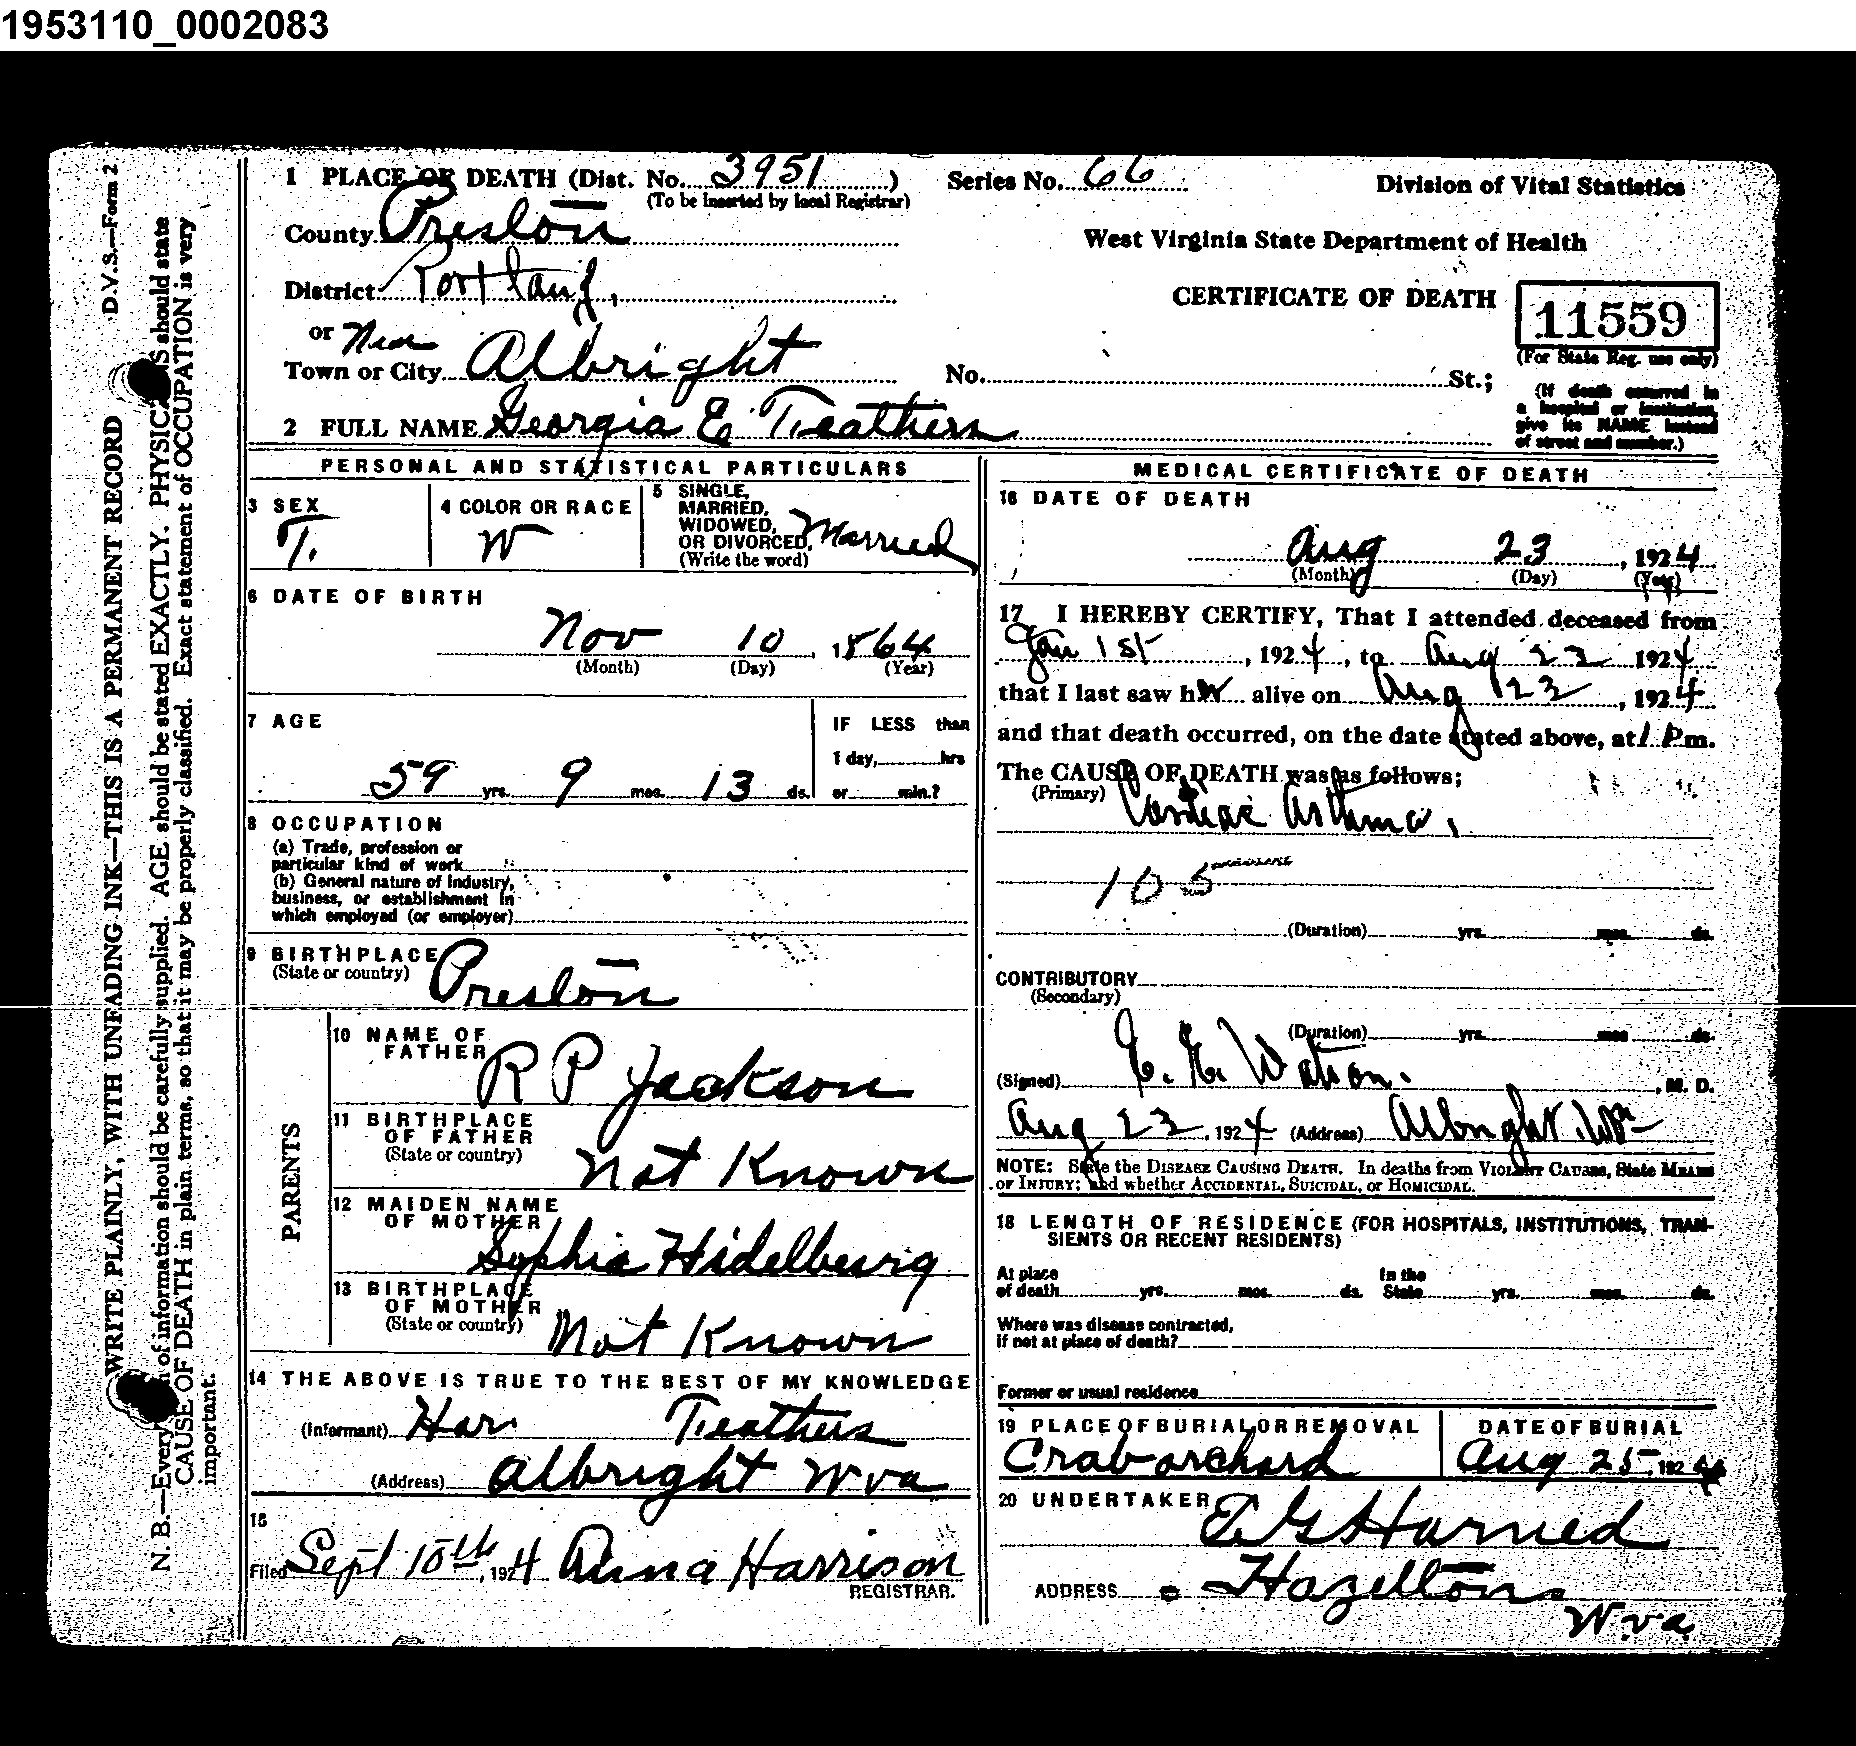 1953110_0002083
D.V.S.—Form 2
WRITE PLAINLY, WITH UNFADING INK—THIS IS A PERMANENT RECORD
N. B.—Every of information should be carefully supplied. AGE should be stated EXACTLY. PHYSIC S should state
CAUSE OF DEATH in plain terms, so that it may be properly classified. Exact statement of OCCUPATION is very
important.
1 PLACE OF DEATH (Dist. No. 3951) Series No. 66 Division of Vital Statistics
(To be inserted by local Registrar)
County Preston West Virginia State Department of Health
District Portland, CERTIFICATE OF DEATH 11559
(For State Reg. use only)
or Near
Town or City Albright No. St.;
(If death occurred in
a hospital or institution,
give its NAME instead
of street and number.)
2 FULL NAME Georgia E Feathers
PERSONAL AND STATISTICAL PARTICULARS
3 SEX
F.
4 COLOR OR RACE
W
5 SINGLE,
MARRIED,
WIDOWED,
OR DIVORCED,
(Write the word)
Married
6 DATE OF BIRTH
Nov 10, 1864
(Month) (Day) (Year)
7 AGE
59 yrs. 9 mos. 13 ds.
IF LESS than
1 day, hrs
or min.?
8 OCCUPATION
(a) Trade, profession or
particular kind of work
(b) General nature of industry,
business, or establishment in
which employed (or employer)
9 BIRTHPLACE
(State or country)
Preston
PARENTS
10 NAME OF
FATHER
R P Jackson
11 BIRTHPLACE
OF FATHER
(State or country)
Not Known
12 MAIDEN NAME
OF MOTHER
Sophia Hidelburg
13 BIRTHPLACE
OF MOTHER
(State or country)
Not Known
14 THE ABOVE IS TRUE TO THE BEST OF MY KNOWLEDGE
(Informant) Har Feathers
(Address) Albright W va
15
Filed Sept 10th, 1924 Anna Harrison
REGISTRAR.
MEDICAL CERTIFICATE OF DEATH
16 DATE OF DEATH
Aug 23, 1924
(Month) (Day) (Year)
17 I HEREBY CERTIFY, That I attended deceased from
Jan 1st, 1924, to Aug 23 1924
that I last saw her alive on Aug 23, 1924
and that death occurred, on the date stated above, at 1 P m.
The CAUSE OF DEATH was as follows;
(Primary)
Cardiac Asthma,
105
(Duration) yrs. mos. ds.
CONTRIBUTORY
(Secondary)
(Duration) yrs. mos. ds.
(Signed) E. E. Watson. , M. D.
Aug 23, 1924 (Address) Albright, Wva
NOTE: State the DISEASE CAUSING DEATH. In deaths from VIOLENT CAUSES, State MEANS
OF INJURY; and whether ACCIDENTAL, SUICIDAL, or HOMICIDAL.
18 LENGTH OF RESIDENCE (FOR HOSPITALS, INSTITUTIONS, TRAN-
SIENTS OR RECENT RESIDENTS)
At place
of death yrs. mos. ds.
In the
State yrs. mos. ds.
Where was disease contracted,
if not at place of death?
Former or usual residence
19 PLACE OF BURIAL OR REMOVAL
Crab orchard
DATE OF BURIAL
Aug 25, 1924
20 UNDERTAKER
E G Harned
ADDRESS Hazelton
W.va.